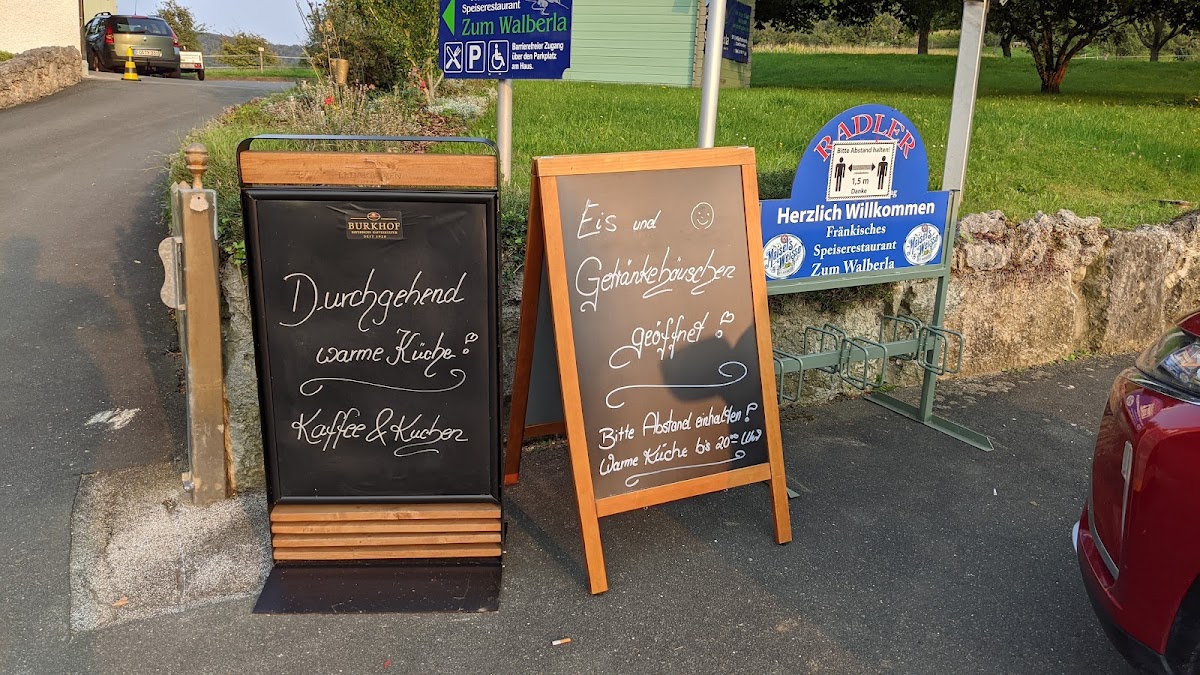 Speiserestaurant
Zum Walberla
P
Barrierefreier Zugang
über den Parkplatz
am Haus.
BURKHOF
Durchgehend
warme Küche!
Kaffee & Kuchen
Eis und
Getränkehäuschen
geöffnet!
Bitte Abstand einhalten!
Warme Küche bis 20⁰⁰ Uhr
RADLER
Bitte Abstand halten!
1,5 m
Danke
Herzlich Willkommen
Fränkisches
Speiserestaurant
Zum Walberla
Maisel's Weisse
Maisel's Weisse